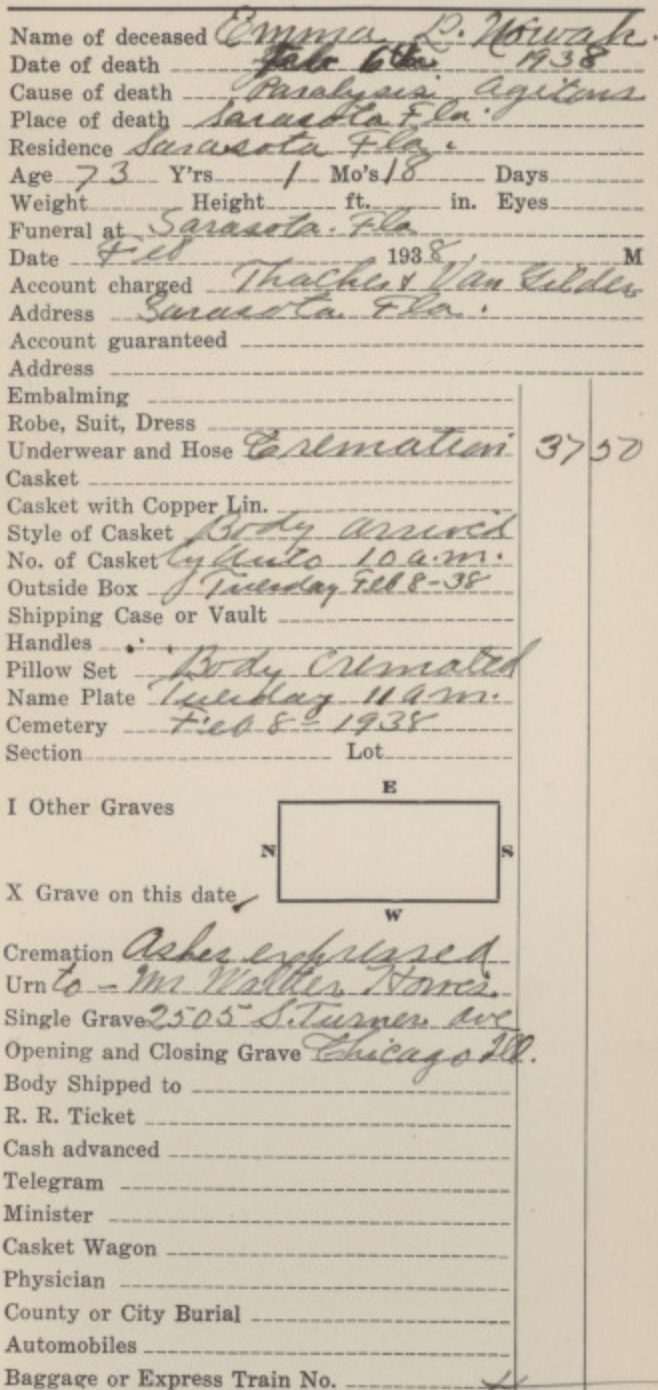 Name of deceased Emma L. Nowak.
Date of death Feb 6th 1938
Cause of death Paralysis agitans
Place of death Sarasota Fla.
Residence Sarasota Fla.
Age 73 Y'rs 1 Mo's 18 Days
Weight Height ft. in. Eyes
Funeral at Sarasota. Fla
Date Feb 1938, M
Account charged Thacher & Van Gilder
Address Sarasota Fla.
Account guaranteed
Address
Embalming
Robe, Suit, Dress
Underwear and Hose Cremation 37 50
Casket
Casket with Copper Lin.
Style of Casket Body arrived
No. of Casket by auto 10 a.m.
Outside Box Tuesday Feb 8-38
Shipping Case or Vault
Handles
Pillow Set Body Cremated
Name Plate Tuesday 11 a m.
Cemetery Feb 8 - 1938
Section Lot
E
I Other Graves
N S
X Grave on this date
W
Cremation Ashes expressed
Urn to - Mr Walter
Single Grave 2505 S. Turner ave
Opening and Closing Grave Chicago Ill.
Body Shipped to
R. R. Ticket
Cash advanced
Telegram
Minister
Casket Wagon
Physician
County or City Burial
Automobiles
Baggage or Express Train No.